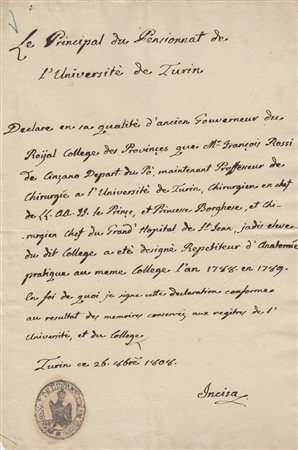 Le Principal du Pensionnat de
L'Université de Turin
Declare en sa qualité d'ancien Gouverneur du
Roÿal College des Provinces que Mr. François Rossi
de Cinzano Depart du Pô, maintenant Proffesseur de
Chirurgie a l'Université de Turin, Chirurgien en chef
de LL. AA. II. le Prince, et Princesse Borghese, et Chi-
rurgien Chef du Grand' Hopital de St. Jean, jadis eleve
du dit College a eté designé Repetiteur d'Anatomie
pratique au meme College l'an 1788 en 1789.
En foi de quoi je signe cette declaration conforme
au resultat des memoires conservés aux regitres de l'
Université, et du College
Turin ce 26. 8bre 1808.
Incisa